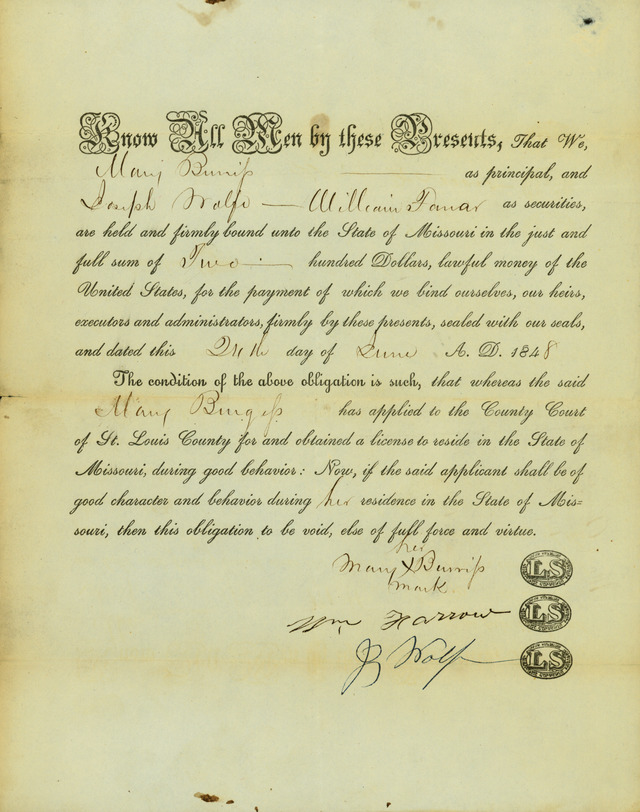 Know All Men by these Presents, That We,
Mary Burriss as principal, and
Joseph Wolfe — William Farrar as securities,
are held and firmly bound unto the State of Missouri in the just and
full sum of Two — hundred Dollars, lawful money of the
United States, for the payment of which we bind ourselves, our heirs,
executors and administrators, firmly by these presents, sealed with our seals,
and dated this 24th day of June A. D. 1848
The condition of the above obligation is such, that whereas the said
Mary Burgess has applied to the County Court
of St. Louis County for and obtained a license to reside in the State of
Missouri, during good behavior: Now, if the said applicant shall be of
good character and behavior during her residence in the State of Mis=
souri, then this obligation to be void, else of full force and virtue.
her
Mary X Burriss LS
mark
Wm Farrow LS
J Wolfe LS